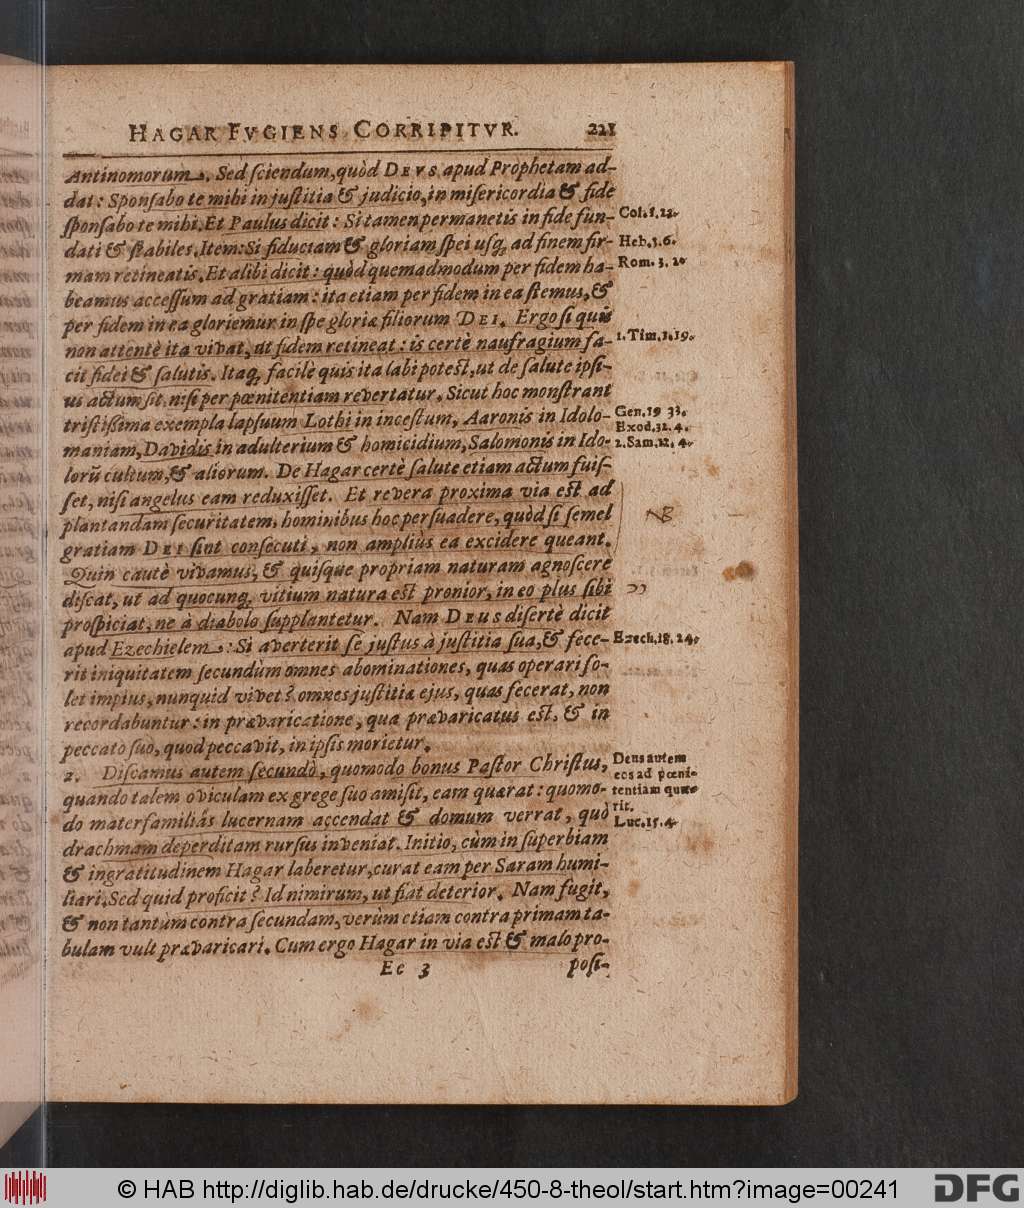 HAGAR FVGIENS CORRIPITVR. 221
Antinomorum. Sed ſciendum, quòd DEVS apud Prophetam ad-
dat: Sponſabo te mihi in juſtitia & judicio, in miſericordia & fide
ſponſabo te mihi. Et Paulus dicit: Si tamen permanetis in fide fun-
dati & ſtabiles. Item: Si fiduciam & gloriam ſpei uſq; ad finem fir-
mam retineatis. Et alibi dicit: quòd quemadmodum per fidem ha-
beamus acceſſum ad gratiam: ita etiam per fidem in ea ſtemus, &
per fidem in ea gloriemur in ſpe gloriæ filiorum DEI. Ergo ſi quis
non attentè ita vivat, ut fidem retineat: is certè naufragium fa-
cit fidei & ſalutis. Itaq; facilè quis ita labi poteſt, ut de ſalute ipſi-
us actum ſit, niſi per pœnitentiam revertatur. Sicut hoc monſtrant
triſtiſſima exempla lapſuum Lothi in inceſtum, Aaronis in Idolo-
maniam, Davidis in adulterium & homicidium, Salomonis in Ido-
lorũ cultum, & aliorum. De Hagar certè ſalute etiam actum fuiſ-
ſet, niſi angelus eam reduxiſſet. Et revera proxima via eſt ad
plantandam ſecuritatem, hominibus hoc perſuadere, quòd ſi ſemel
gratiam DEI ſint conſecuti, non ampliùs ea excidere queant.
Quin cautè vivamus, & quiſque propriam naturam agnoſcere
diſcat, ut ad quocunq; vitium natura eſt pronior, in eo plus ſibi
proſpiciat, ne à diabolo ſupplantetur. Nam DEUS diſertè dicit
apud Ezechielem: Si averterit ſe juſtus à juſtitia ſua, & fece-
rit iniquitatem ſecundùm omnes abominationes, quas operari ſo-
let impius, nunquid vivet? omnes juſtitiæ ejus, quas fecerat, non
recordabuntur: in prævaricatione, qua prævaricatus eſt, & in
peccato ſuo, quod peccavit, in ipſis morietur.
2. Diſcamus autem ſecundò, quomodo bonus Paſtor Chriſtus,
quando talem oviculam ex grege ſuo amiſit, eam quærat: quomo-
do materfamiliâs lucernam accendat & domum verrat, quò
drachmam deperditam rurſus inveniat. Initio, cùm in ſuperbiam
& ingratitudinem Hagar laberetur, curat eam per Saram humi-
liari. Sed quid proficit? Id nimirum, ut fiat deterior. Nam fugit,
& non tantùm contra ſecundam, verùm etiam contra primam ta-
bulam vult prævaricari. Cum ergo Hagar in via eſt & malo pro-
Ee 3 poſi-
Col. 1. 23.
Heb. 3. 6.
Rom. 5. 2.
1. Tim. 1. 19.
Gen. 19 33.
Exod. 32. 4.
2. Sam. 12. 4.
NB
Ezech. 18. 24.
Deus autem
eos ad pœni-
tentiam quæ-
rit.
Luc. 15. 4.
© HAB http://diglib.hab.de/drucke/450-8-theol/start.htm?image=00241
DFG